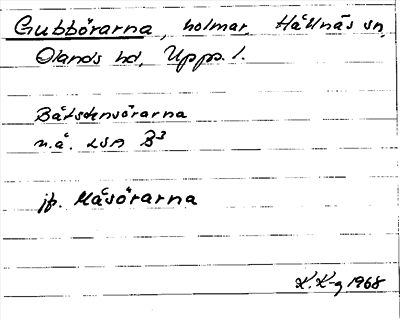 Gubbörarna, holmar Hållnäs sn,
Olands hd, Upps. l.
Båtstensörarna
n.å. LSA B3
jfr. Måsörarna
K.K-g 1968